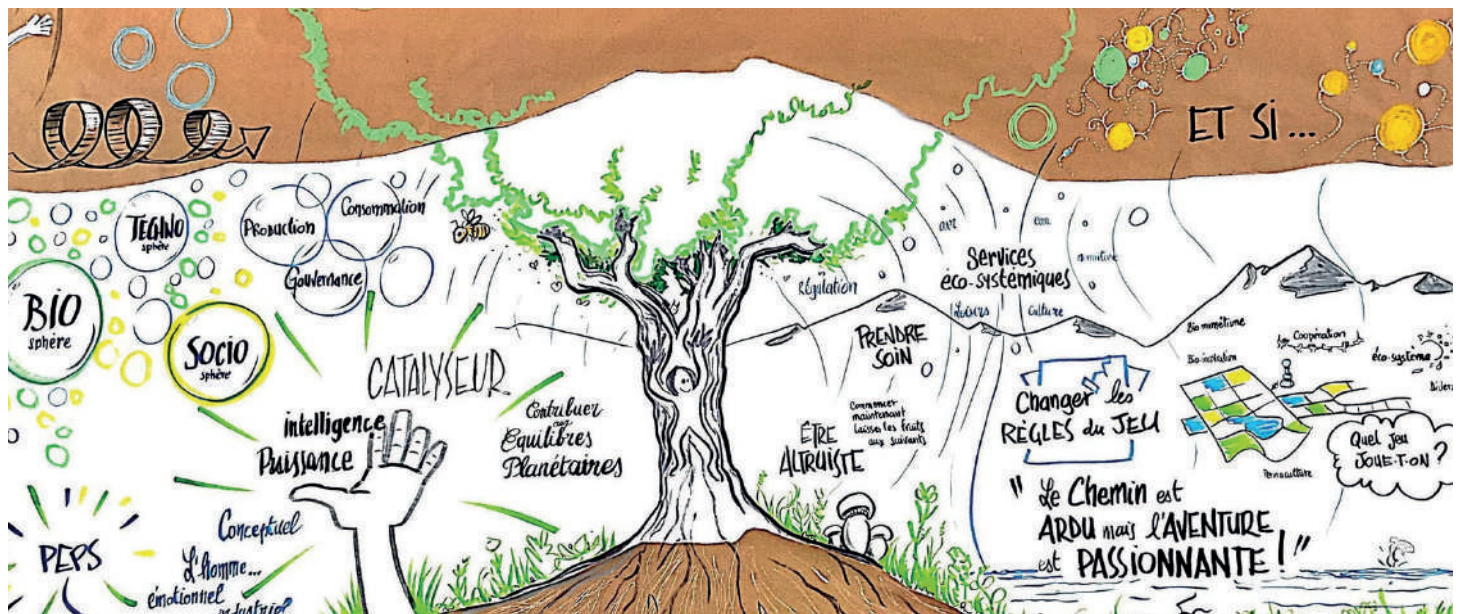 ET SI ...
TECHNO
sphère
PRODUCTION
Consommation
Gouvernance
BIO
sphère
SOCIO
sphère
CATALYSEUR
intelligence
Puissance
Contribuer
aux
Equilibres
Planétaires
PEPS
Conceptuel
L'homme...
émotionnel
Régulation
air
eau
Services
éco-systémiques
Loisirs
Culture
PRENDRE
SOIN
ÊTRE
ALTRUISTE
Commencer
maintenant
laisser les fruits
aux suivants
Changer les
RÈGLES du JEU
Biomimétisme
Bio-inspiration
Coopération
éco-système
Permaculture
Quel jeu
JOUE-T-ON ?
" Le Chemin est
ARDU mais l'AVENTURE
est PASSIONNANTE ! "